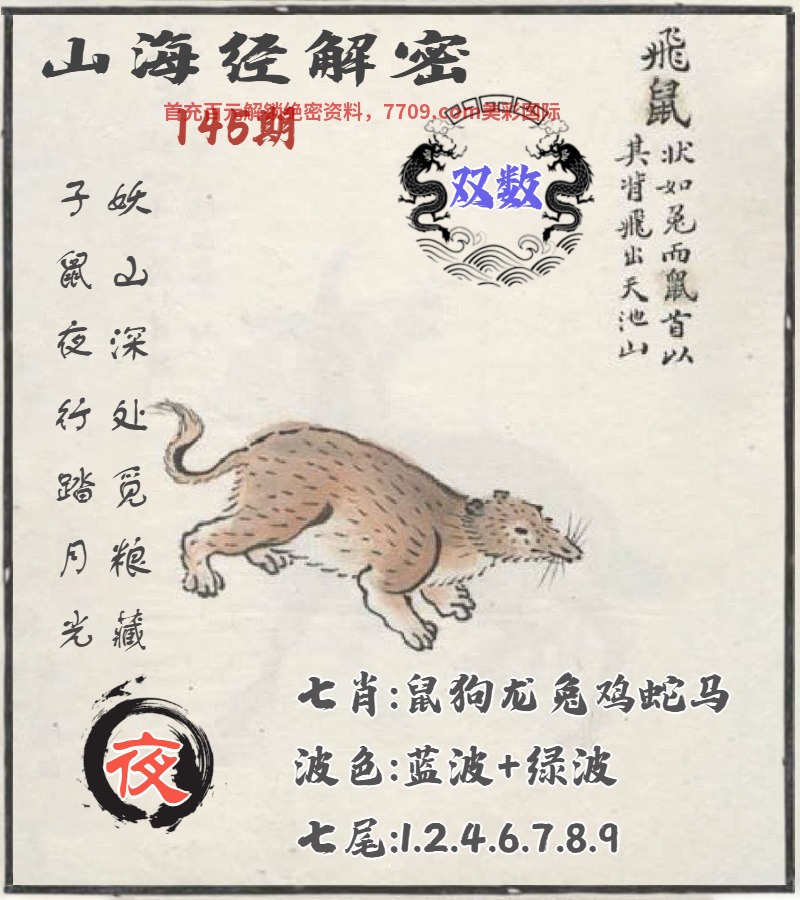 山海经解密
首充百元解锁绝密资料，7709.com昊彩国际
146期
双数
飛鼠
状如兎而鼠首以
其背飛出天池山
妖山深处觅粮藏
子鼠夜行踏月光
夜
七肖:鼠狗龙兔鸡蛇马
波色:蓝波+绿波
七尾:1.2.4.6.7.8.9